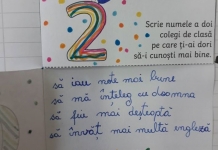 2
Scrie numele a doi
colegi de clasă
pe care ți-ai dori
să-i cunoști mai bine.
să iau note mai bune
să mă înțeleg cu doamna
să fiu mai deșteaptă
să învăț mai multă engleză